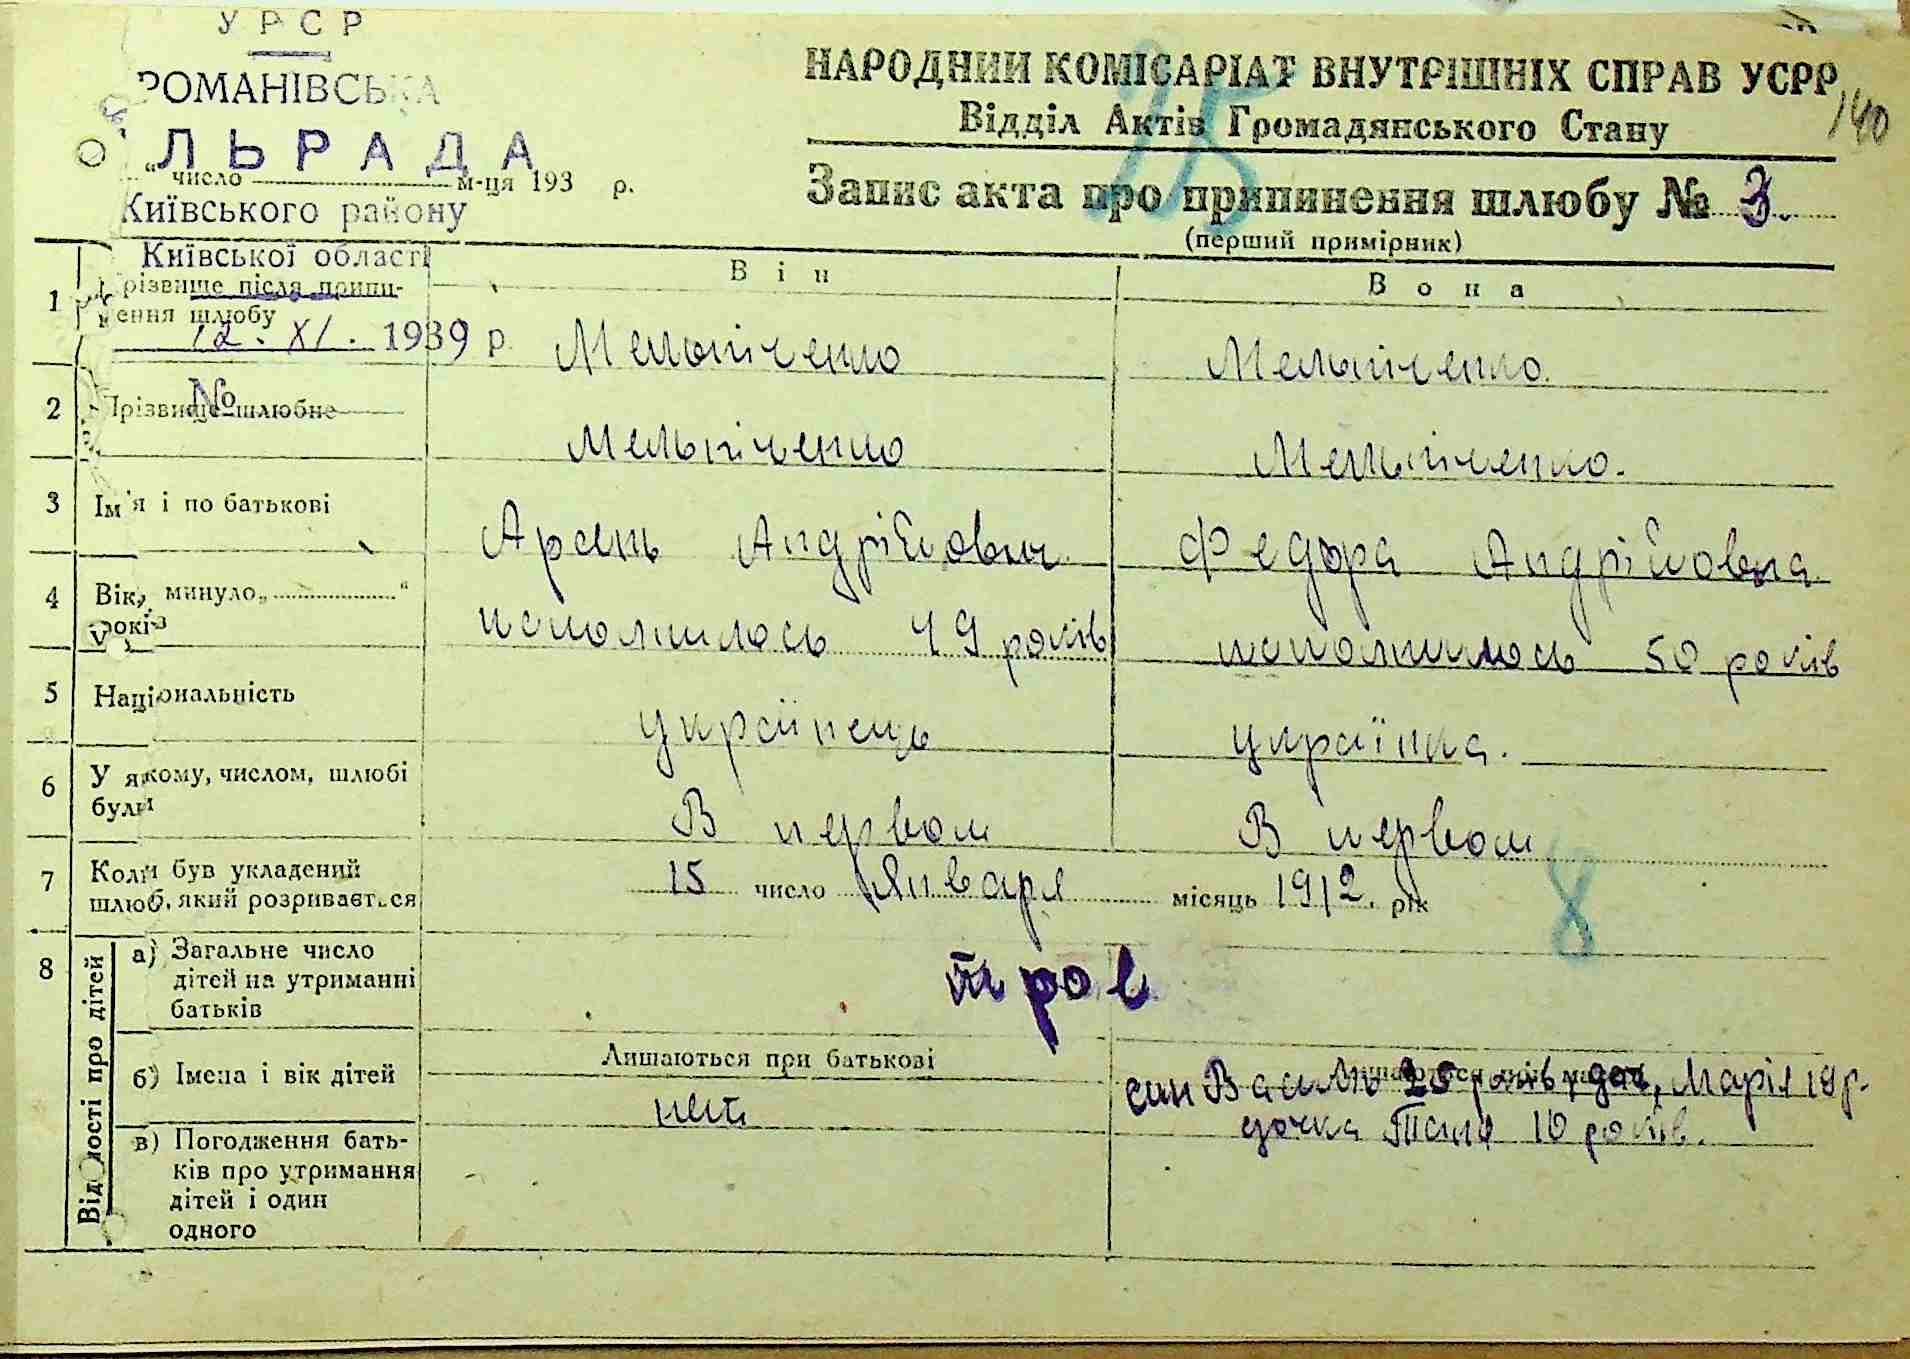 УРСР
РОМАНІВСЬКА
ЛЬРАДА
" число м-ця 193 р.
Київського району
Київської області
12. XI. 1939 р.
№
НАРОДНИЙ КОМІСАРІАТ ВНУТРІШНІХ СПРАВ УСРР
140
Відділ Актів Громадянського Стану
Запис акта про припинення шлюбу № 3.
(перший примірник)
Він Вона
1 Прізвище після припи-
нення шлюбу
Мельніченко Мельніченко.
2 Прізвище шлюбне
Мельніченко Мельніченко.
3 Ім'я і по батькові
Арсень Андрійович Федора Андрійовна
4 Вік, минуло „ “
років
исполнилось 49 років исполнилось 50 років
5 Національність
українець українка.
6 У якому, числом, шлюбі
були
В первом В первом
7 Коли був укладений
шлюб, який розривається
15 число Января місяць 1912. рік
8
8 Відомості про дітей
а) Загальне число
дітей на утриманні
батьків
троє
б) Імена і вік дітей
Лишаються при батькові
нет
син Василь 25 років, доч, Марія 19 р.
дочка Таня 10 років.
в) Погодження бать-
ків про утримання
дітей і один
одного